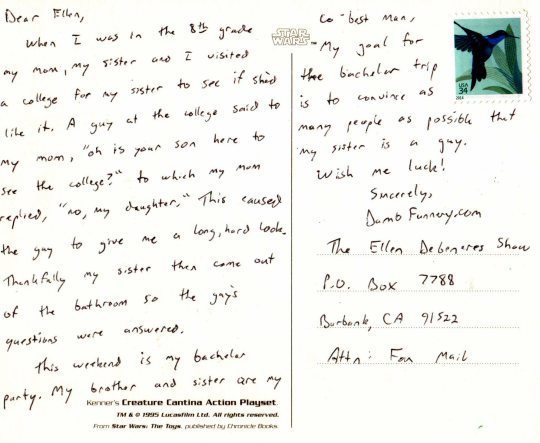 Dear Ellen,
When I was in the 8th grade
my mom, my sister and I visited
a college for my sister to see if she'd
like it. A guy at the college said to
my mom, "oh is your son here to
see the college?" to which my mom
replied, "no, my daughter." This caused
the guy to give me a long, hard look.
Thankfully my sister then came out
of the bathroom so the guy's
questions were answered.
This weekend is my bachelor
party. My brother and sister are my
Kenner's Creature Cantina Action Playset.
TM & © 1995 Lucasfilm Ltd. All rights reserved.
From Star Wars: The Toys, published by Chronicle Books.
STAR
WARS
co-best man,
My goal for
the bachelor trip
is to convince as
many people as possible that
my sister is a guy.
Wish me luck!
Sincerely,
DumbFunnery.com
The Ellen Debeneres Show
P.O. Box 7788
Burbank, CA 91522
Attn: Fan Mail
USA
34
2014